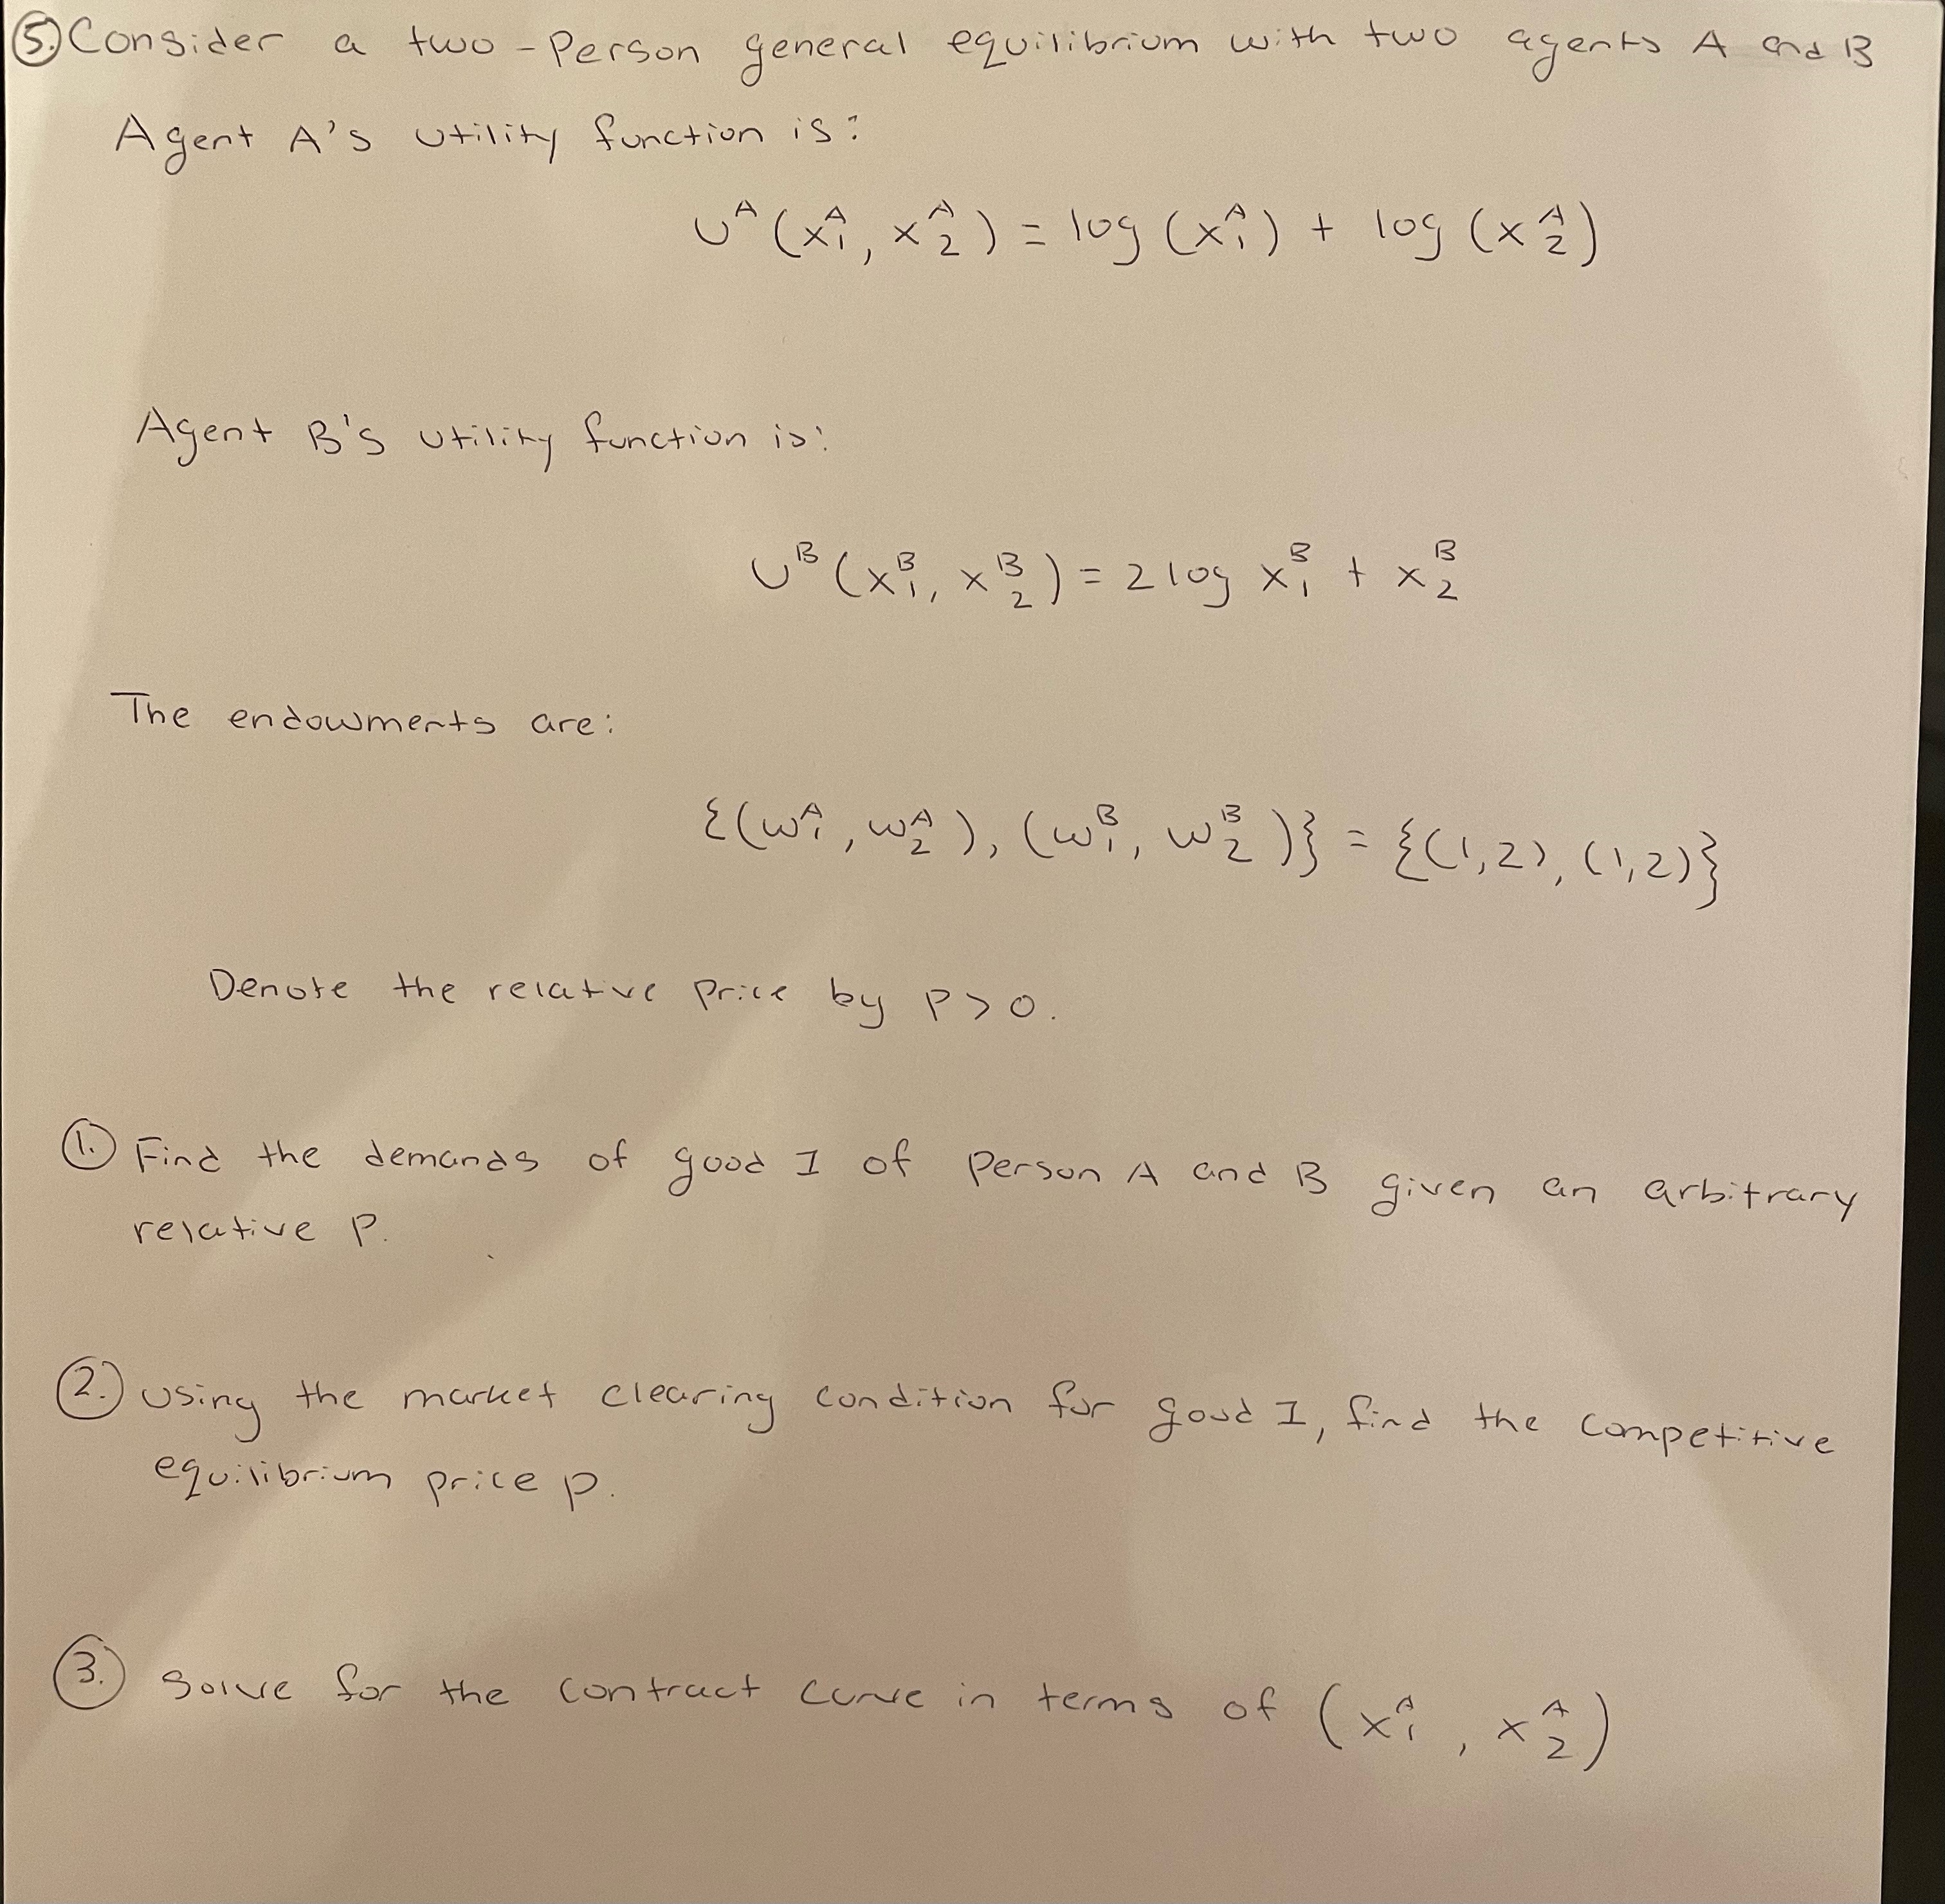 5. Consider a two-Person general equilibrium with two agents A and B
Agent A's utility function is:
U^A (x_1^A, x_2^A) = log (x_1^A) + log (x_2^A)
Agent B's utility function is:
U^B (x_1^B, x_2^B) = 2 log x_1^B + x_2^B
The endowments are:
{(w_1^A, w_2^A), (w_1^B, w_2^B)} = {(1,2), (1,2)}
Denote the relative price by P > 0.
1. Find the demands of good I of Person A and B given an arbitrary
relative P.
2. Using the market clearing condition for good I, find the competitive
equilibrium price p.
3. Solve for the contract curve in terms of (x_1^A, x_2^A)